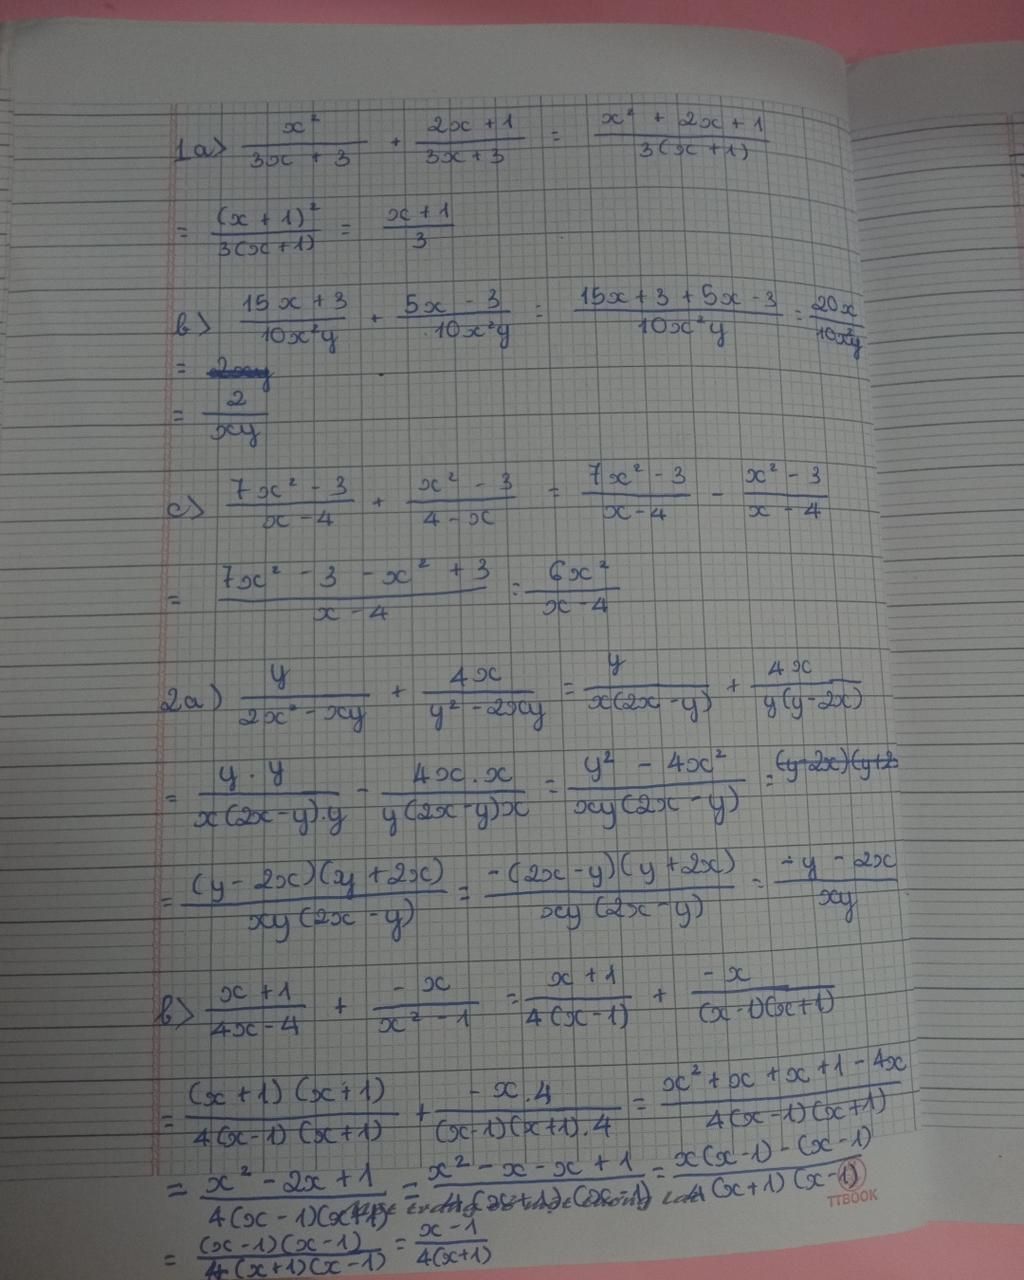 1a) x²/(3x + 3) + (2x + 1)/(3x + 3) = (x² + 2x + 1)/(3(x + 1))
= (x + 1)²/(3(x + 1)) = (x + 1)/3
b) (15x + 3)/(10x²y) + (5x - 3)/(10x²y) = (15x + 3 + 5x - 3)/(10x²y) = 20x/(10x²y)
=
= 2/(xy)
c) (7x² - 3)/(x - 4) + (x² - 3)/(4 - x) = (7x² - 3)/(x - 4) - (x² - 3)/(x - 4)
= (7x² - 3 - x² + 3)/(x - 4) = 6x²/(x - 4)
2a) y/(2x² - xy) + 4x/(y² - 2xy) = y/(x(2x - y)) + 4x/(y(y - 2x))
= (y . y)/(x(2x - y).y) - (4x . x)/(y(2x - y)x) = (y² - 4x²)/(xy(2x - y)) = (y - 2x)(y + 2
= ((y - 2x)(y + 2x))/(xy(2x - y)) = (-(2x - y)(y + 2x))/(xy(2x - y)) = (-y - 2x)/(xy)
b) (x + 1)/(4x - 4) + (-x)/(x² - 1) = (x + 1)/(4(x - 1)) + (-x)/((x - 1)(x + 1))
= ((x + 1)(x + 1))/(4(x - 1)(x + 1)) + (-x . 4)/((x - 1)(x + 1) . 4) = (x² + x + x + 1 - 4x)/(4(x - 1)(x + 1))
= (x² - 2x + 1)/(4(x - 1)(x + 1)) = (x² - x - x + 1)/(4(x + 1)(x - 1)) = (x(x - 1) - (x - 1))/(4(x + 1)(x - 1))
TTBOOK
= ((x - 1)(x - 1))/(4(x + 1)(x - 1)) = (x - 1)/(4(x + 1))